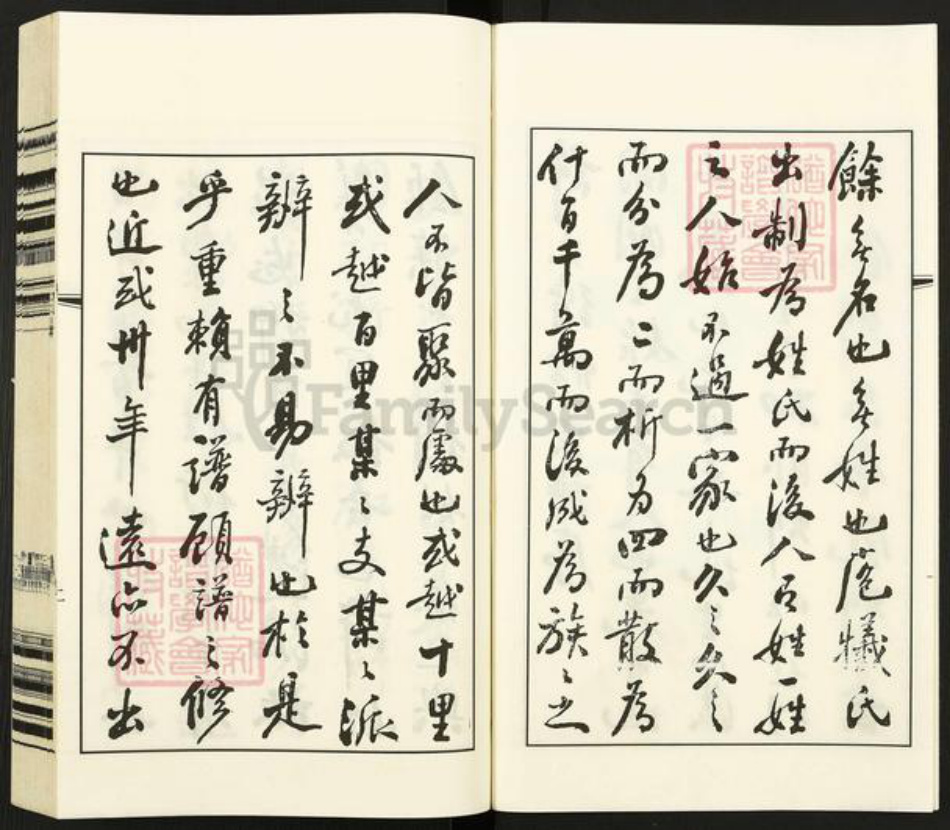 餘無名也無姓也庖犧氏
出制為姓氏而後人百姓一姓
之人始不過一家也久之久之
而分為二而析為四而散為
什百千萬而後成為族〻之
人不皆聚而處也或越十里
或越百里某〻支某〻派
辨之不易辨也於是
乎重賴有譜顧譜之修
也近或卅年遠亦不出
FamilySearch